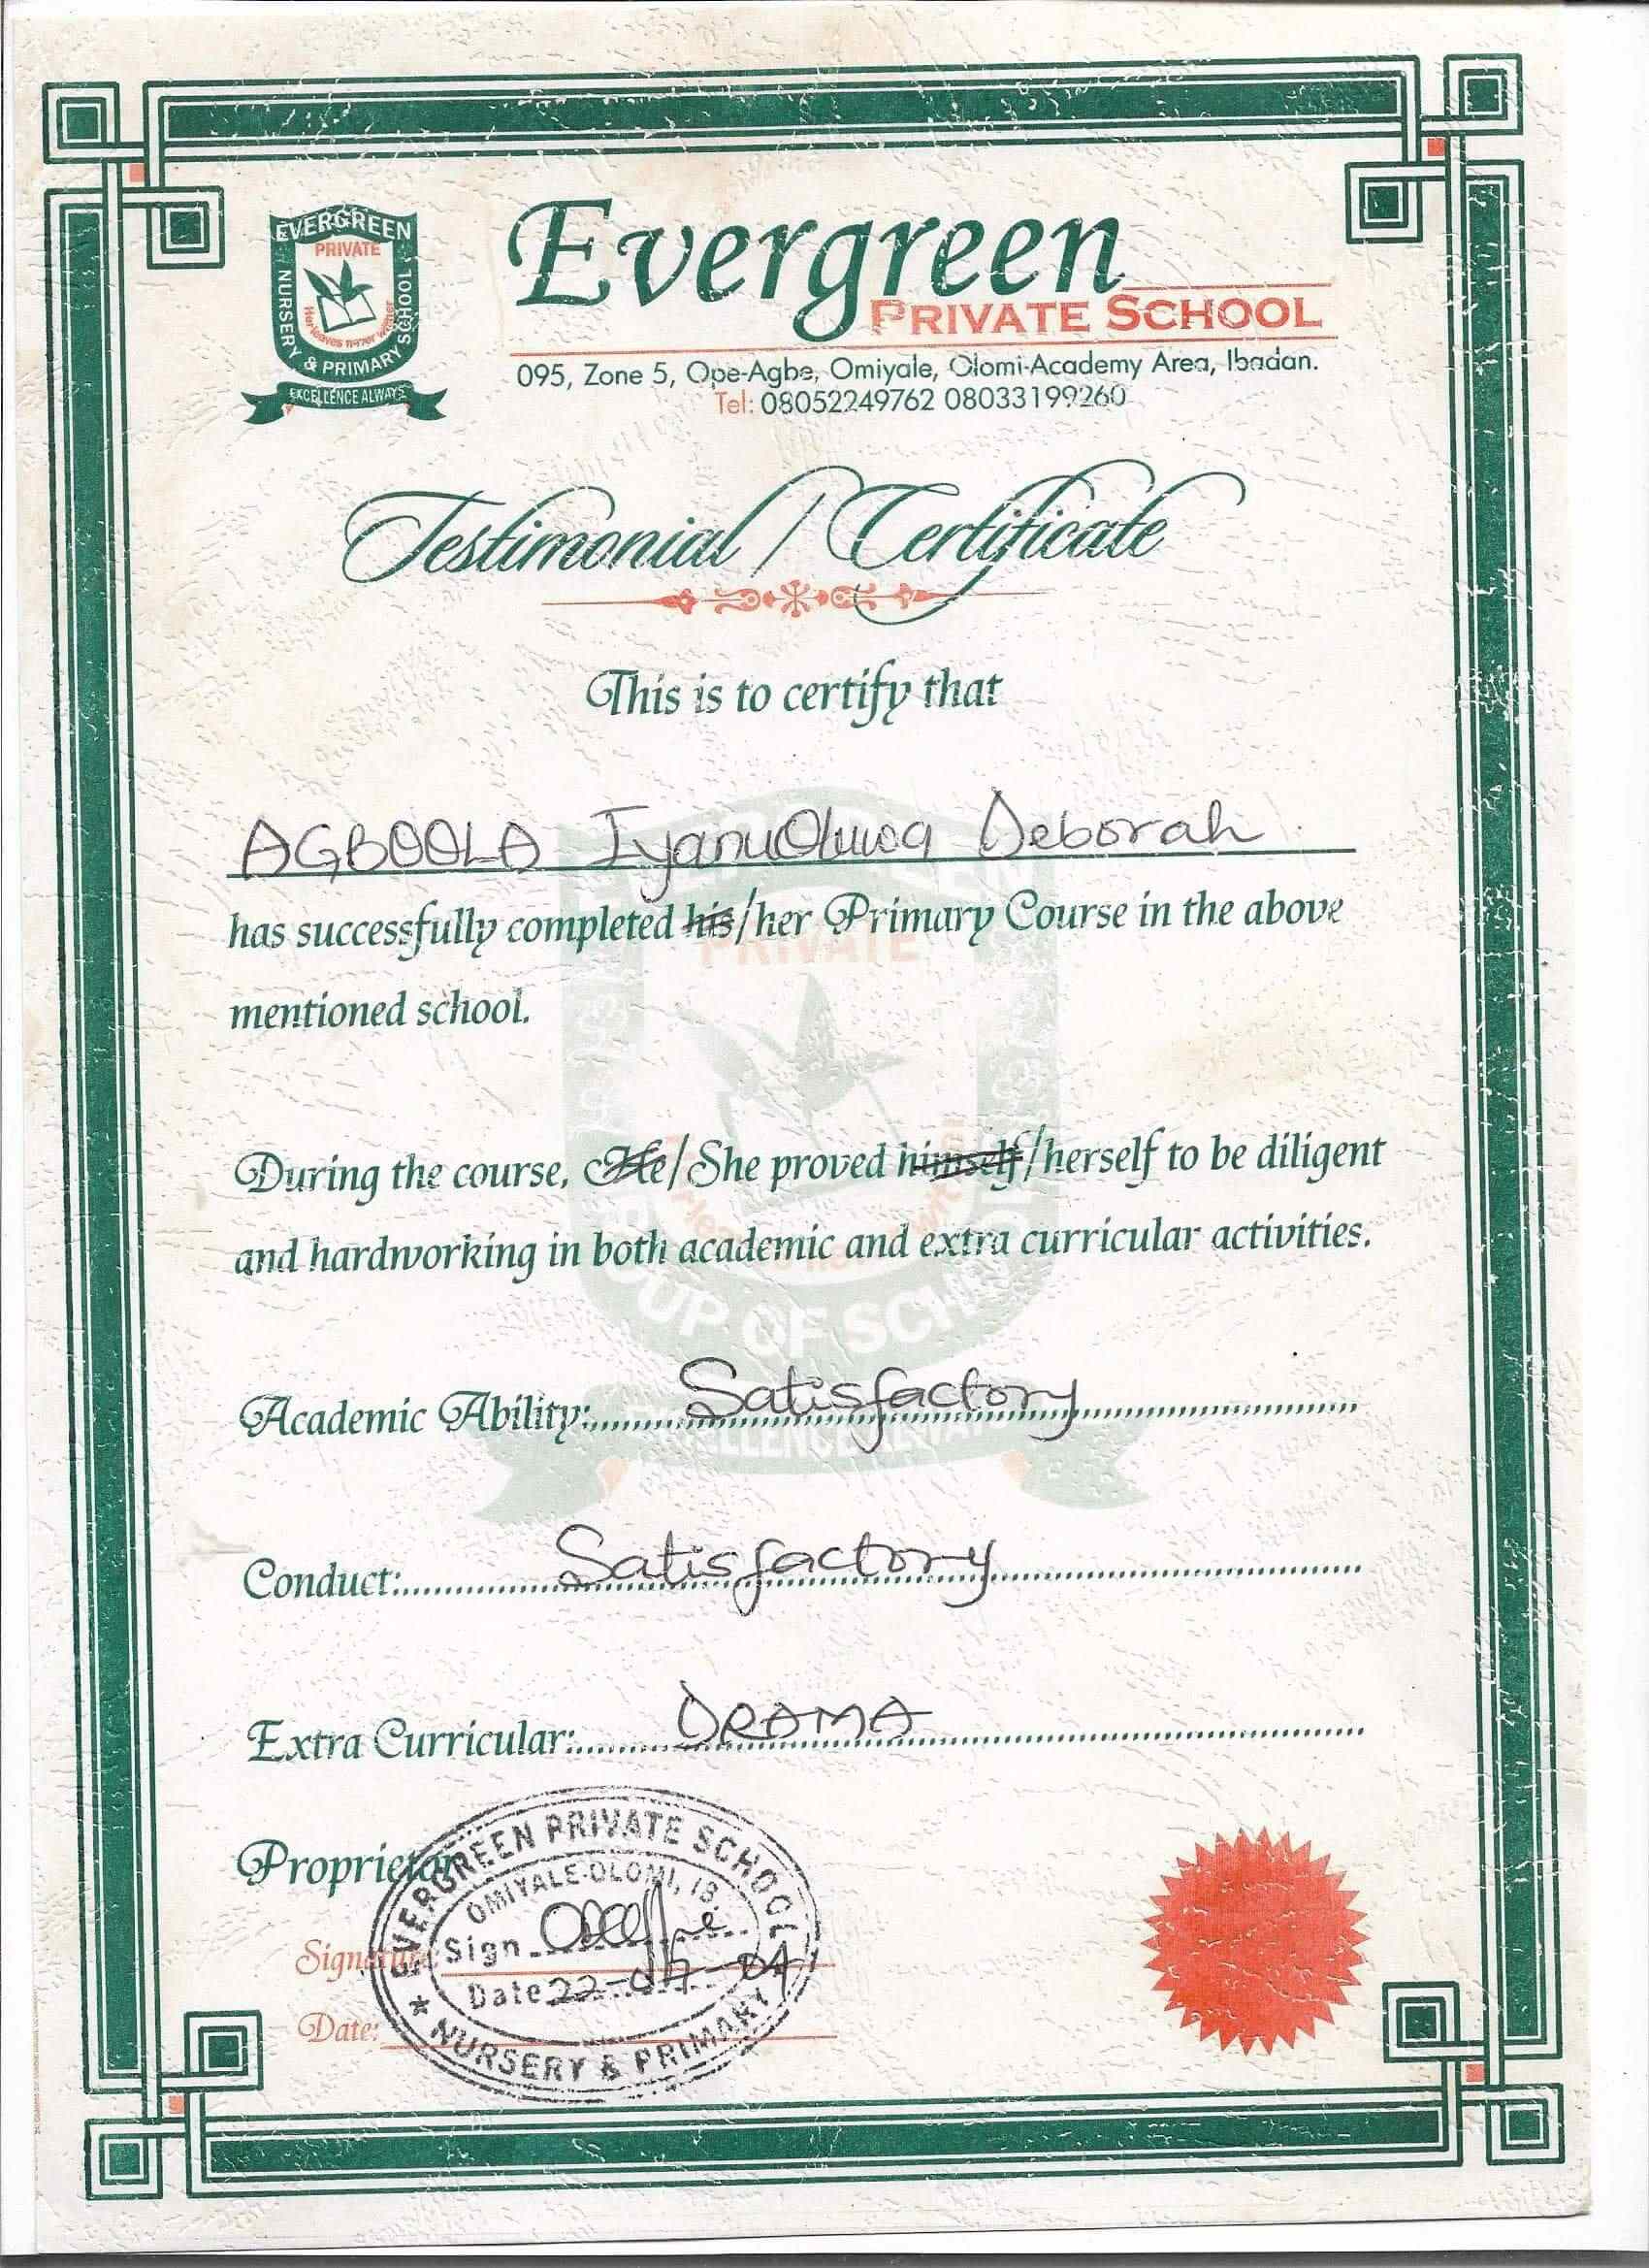 EVERGREEN
PRIVATE
NURSERY & PRIMARY SCHOOL
EXCELLENCE ALWAYS
Evergreen
PRIVATE SCHOOL
095, Zone 5, Ope-Agbe, Omiyale, Olomi-Academy Area, Ibadan.
Tel: 08052249762 08033199260
Testimonial / Certificate
This is to certify that
AGBOOLA IyanuOluwa Deborah
has successfully completed his/her Primary Course in the above
mentioned school.
During the course, He/She proved himself/herself to be diligent
and hardworking in both academic and extra curricular activities.
Academic Ability: Satisfactory
Conduct: Satisfactory
Extra Curricular: DRAMA
Proprietor
Signature:
Date:
EVERGREEN PRIVATE SCHOOL
OMIYALE-OLOMI, IB
Sign
Date 22-07-04
* NURSERY & PRIMARY